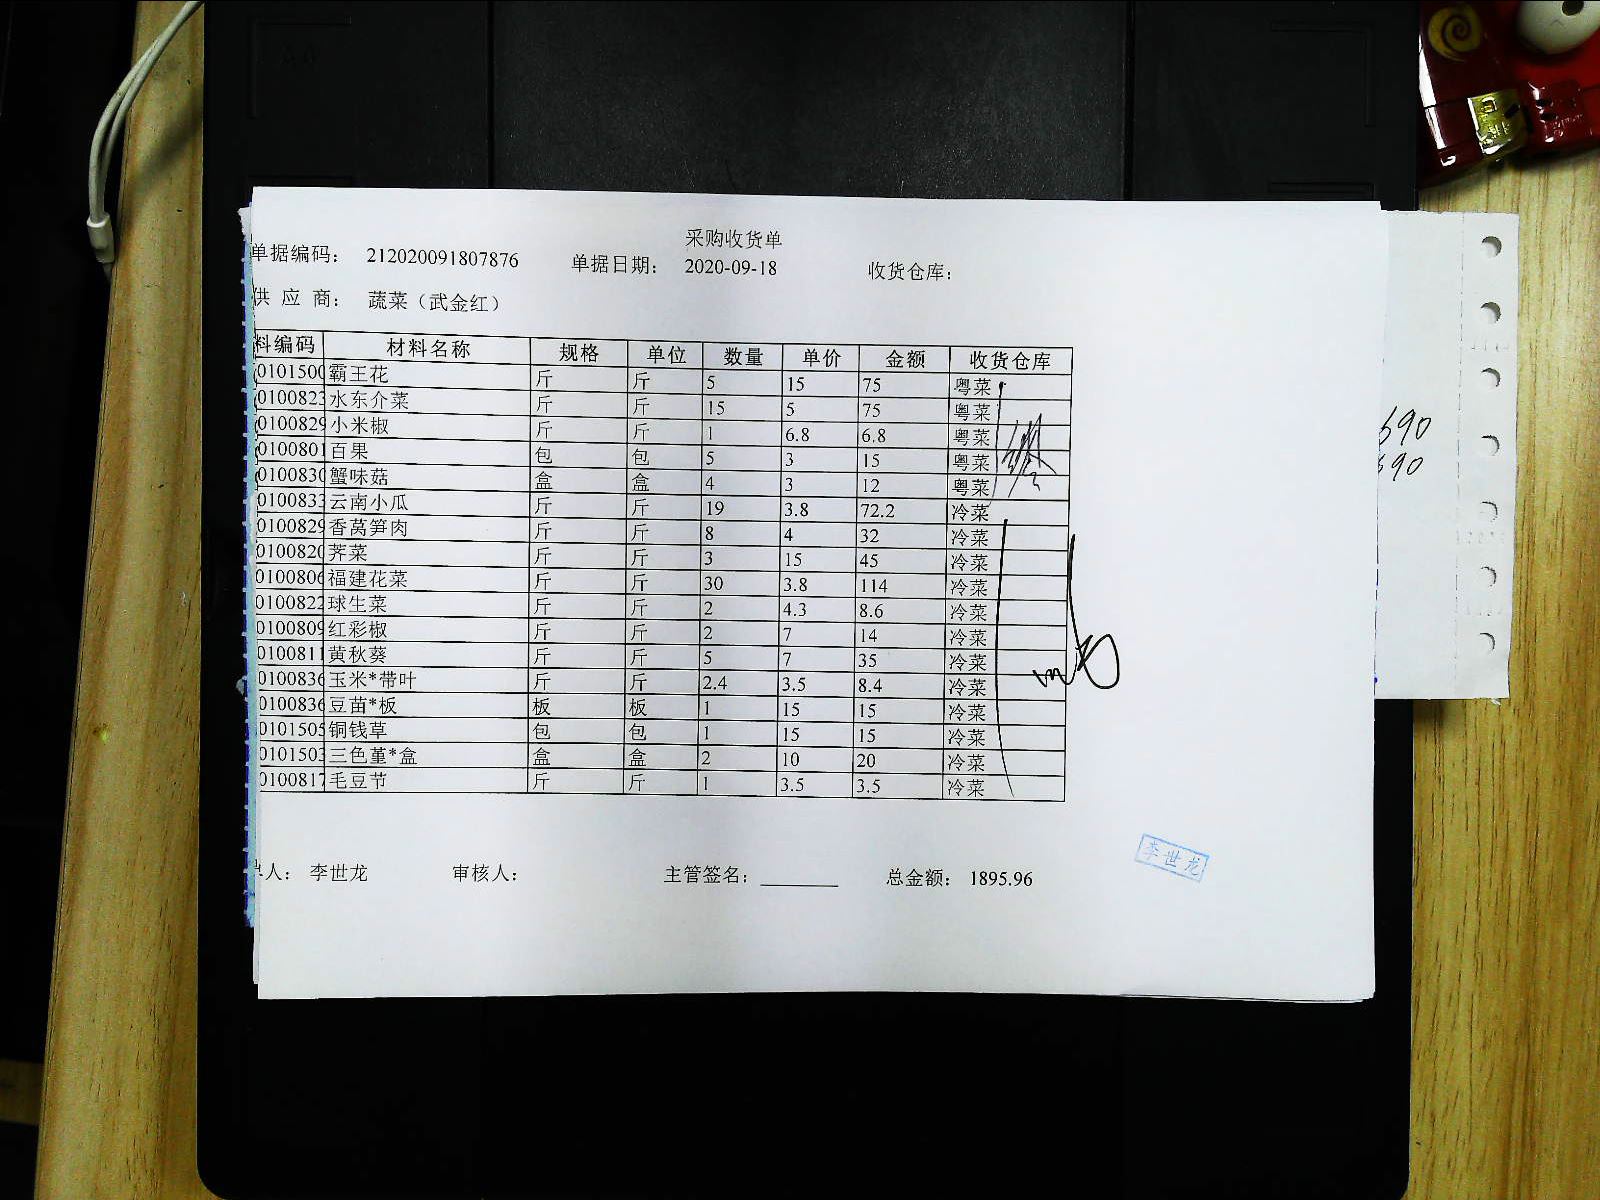 采购收货单
单据编码： 212020091807876 单据日期： 2020-09-18 收货仓库：
供 应 商： 蔬菜（武金红）
料编码 材料名称 规格 单位 数量 单价 金额 收货仓库
0101500 霸王花 斤 斤 5 15 75 粤菜
0100823 水东介菜 斤 斤 15 5 75 粤菜
0100829 小米椒 斤 斤 1 6.8 6.8 粤菜
0100801 百果 包 包 5 3 15 粤菜
0100830 蟹味菇 盒 盒 4 3 12 粤菜
0100833 云南小瓜 斤 斤 19 3.8 72.2 冷菜
0100829 香莴笋肉 斤 斤 8 4 32 冷菜
0100820 荠菜 斤 斤 3 15 45 冷菜
0100806 福建花菜 斤 斤 30 3.8 114 冷菜
0100822 球生菜 斤 斤 2 4.3 8.6 冷菜
0100809 红彩椒 斤 斤 2 7 14 冷菜
0100811 黄秋葵 斤 斤 5 7 35 冷菜
0100836 玉米*带叶 斤 斤 2.4 3.5 8.4 冷菜
0100836 豆苗*板 板 板 1 15 15 冷菜
0101505 铜钱草 包 包 1 15 15 冷菜
0101503 三色堇*盒 盒 盒 2 10 20 冷菜
0100817 毛豆节 斤 斤 1 3.5 3.5 冷菜
人： 李世龙 审核人： 主管签名： 总金额： 1895.96
李世龙
690
690